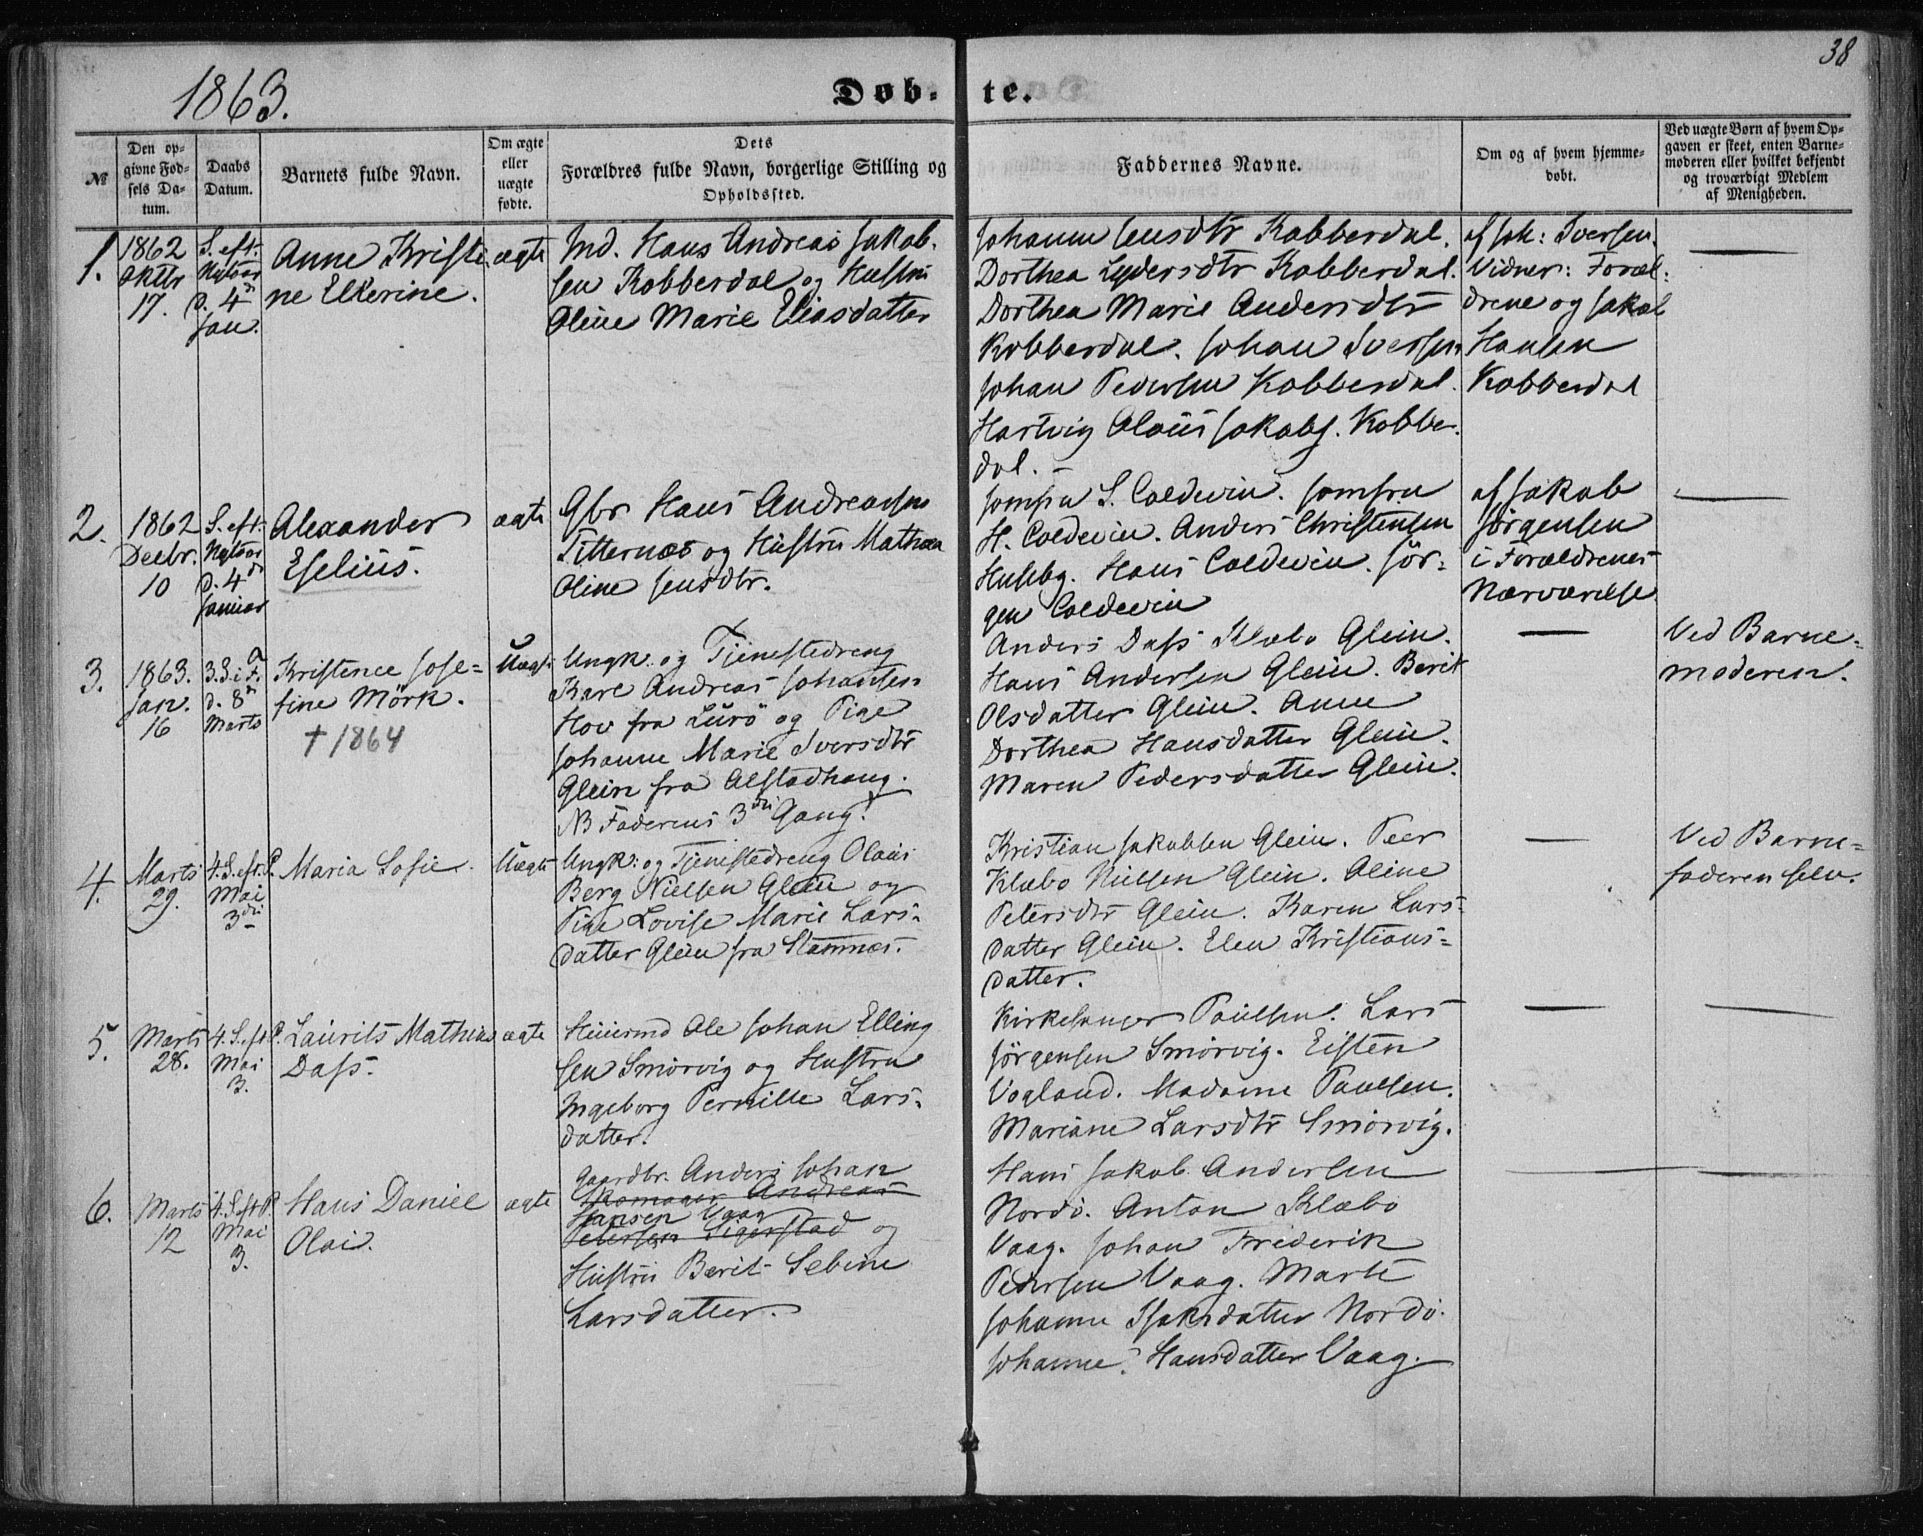 38
1863.
Døb- te.
№
Den op-
givne Fød-
sels Da-
tum.
Daabs
Datum.
Barnets fulde Navn.
Om ægte
eller
uægte
fødte.
Dets
Forældres fulde Navn, borgerlige Stilling og
Opholdssted.
Faddernes Navne.
Om og af hvem hjemme-
døbt.
Ved uægte Børn af hvem Op-
gaven er skeet, enten Barne-
moderen eller hvilket bekjendt
og troværdigt Medlem
af Menigheden.
1.
1862
Oktbr
17.
S. eft.
Nytaar
d. 4de
Jan.
Anne Kristi-
ne Ellerine.
ægte
Ind. Hans Andreas Jakob-
sen Kobberdal og Hustru
Oline Marie Eliasdatter
Johanne Jensdtr Kobberdal.
Dorthea Lydersdtr Kobberdal.
Dorthea Marie Andersdtr
Kobberdal. Johan Iversen
Johan Pedersen Kobberdal.
Hartvig Olaus Jakobs. Kobber-
dal.
af Joh: Iversen.
Vidner: Foræl-
drene og Jakob
Hansen
Kobberdal
2.
1862
Decbr.
10
S. eft.
Nytaar
d. 4de
Januar
Alexander
Eselius.
ægte
Gbr Hans Andreassen
Titternæs og Hustru Mathea
Oline Jensdtr.
Jomfru S. Coldevin. Jomfru
H. Coldevin. Anders Christensen
Husby. Hans Coldevin. Jör-
gen Coldevin
af Jakob
Jørgensen
i Forældrenes
Nærværelse
3.
1863.
Jan.
16
3. S. i F.
d. 8de
Marts
Kristence Jose-
fine Mörk.
† 1864
Uægte
Ungk. og Tjenestedreng
Karl Andreas Johansen
Hov fra Lurö og Pige
Johanne Marie Iversdtr
Glein fra Alstadhaug.
NB Faderens 3die Gang!
Anders Dass Klæbo Glein.
Hans Andersen Glein. Berit
Olsdatter Glein. Anne
Dorthea Hansdatter Glein.
Maren Pedersdatter Glein.
Ved Barne-
moderen.
4.
Marts
29.
4. S. eft. P.
Mai
3die
Maria Sofie.
Uægte
Ungk: og Tjenestedreng Olaus
Berg Nielsen Glein og
Pige Lovise Marie Lars-
datter Glein fra Stamnes.
Kristian Jakobsen Glein. Peer
Klæbo Nielsen Glein. Oline
Petersdtr Glein. Karen Lars-
datter Glein. Elen Kristians-
datter.
Ved Barne-
faderen selv.
5.
Marts
28.
4. S. eft P.
Mai
3.
Laurits Mathias
Dass.
ægte
Huusmd Ole Johan Elling
sen Smörvig og Hustru
Ingeborg Pernille Lars-
datter.
Kirkesanger Paulsen. Lars
Jörgensen Smörvig. Eisten
Vogland. Madame Paulsen.
Mariane Larsdtr Smörvig.
6.
Marts
12
4. S. eft P.
Mai
3.
Hans Daniel
Olai.
ægte
Gaardbr. Anders Johan
Skomager Andreas
Hansen Vaag
Petersen Tigerstad og
Hustru Berit Sebine
Larsdatter.
Hans Jakob Andersen
Nordö. Anton Klæbo
Vaag. Johan Frederik
Pedersen Vaag. Marte
Johanne Isaksdatter Nordö.
Johanne Hansdatter Vaag.